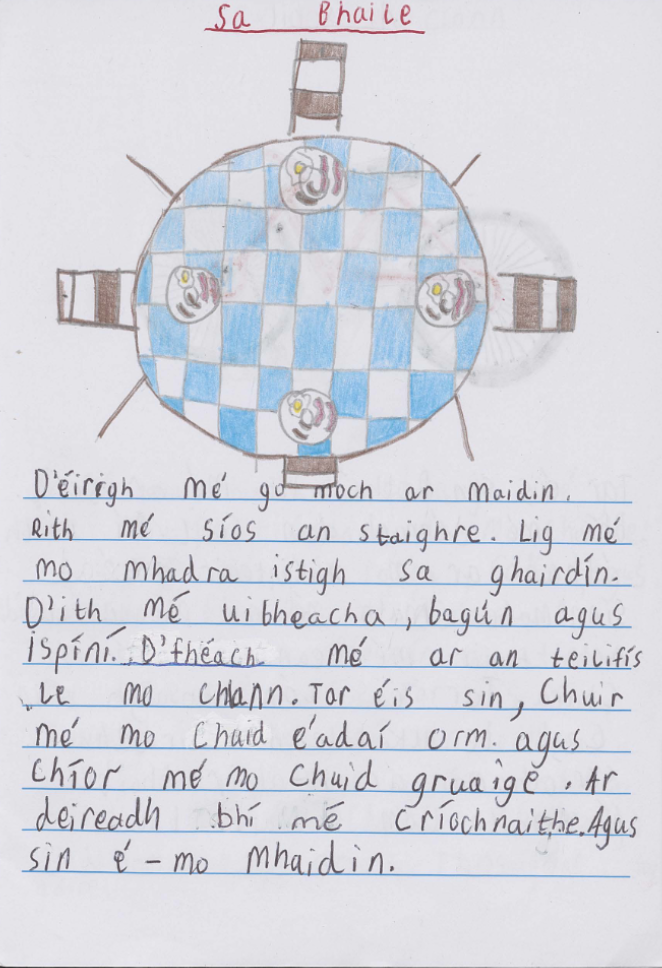 Sa Bhaile
D'éirigh mé go moch ar maidin.
Rith mé síos an staighre. Lig mé
mo mhadra istigh sa ghairdín.
D'ith mé uibheacha, bagún agus
ispíní. D'fhéach mé ar an teilifís
le mo chlann. Tar éis sin, Chuir
mé mo Chuid éadaí orm. agus
Chíor mé mo Chuid gruaige. Ar
deireadh bhí mé Críochnaithe. Agus
sin é - mo Mhaidin.